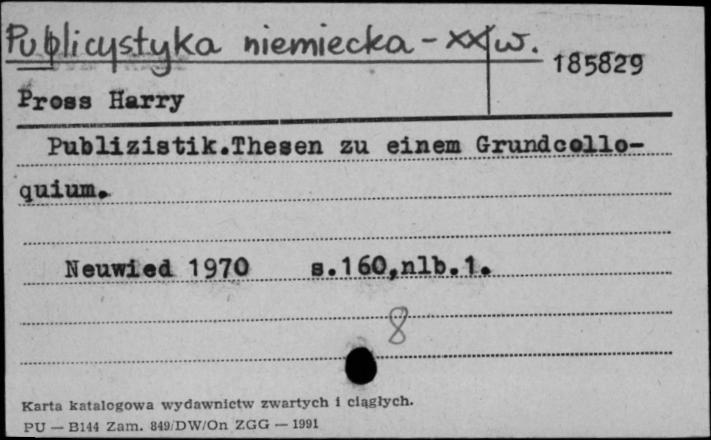 Publicystyka niemiecka - XX w.
185829
Pross Harry
Publizistik.Thesen zu einem Grundcollo-
quium.
Neuwied 1970 s.160,nlb.1.
8
Karta katalogowa wydawnictw zwartych i ciągłych.
PU — B144 Zam. 849/DW/On ZGG — 1991